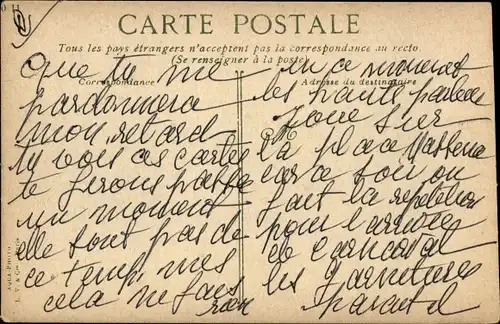 CARTE POSTALE
Tous les pays étrangers n'acceptent pas la correspondance au recto.
(Se renseigner à la poste)
Correspondance
Adresse du destinataire
Que tu me
pardonnera
mon retard
tu vois ces cartes
te ferons passe
un moment
elle sont pas de
ce temps mes
cela ne fais
rien
en ce moment
les hauts parleur
joue sur
la place Massena
car ce soir on
fait la repetition
pour l'arrivée
de Carnaval
les